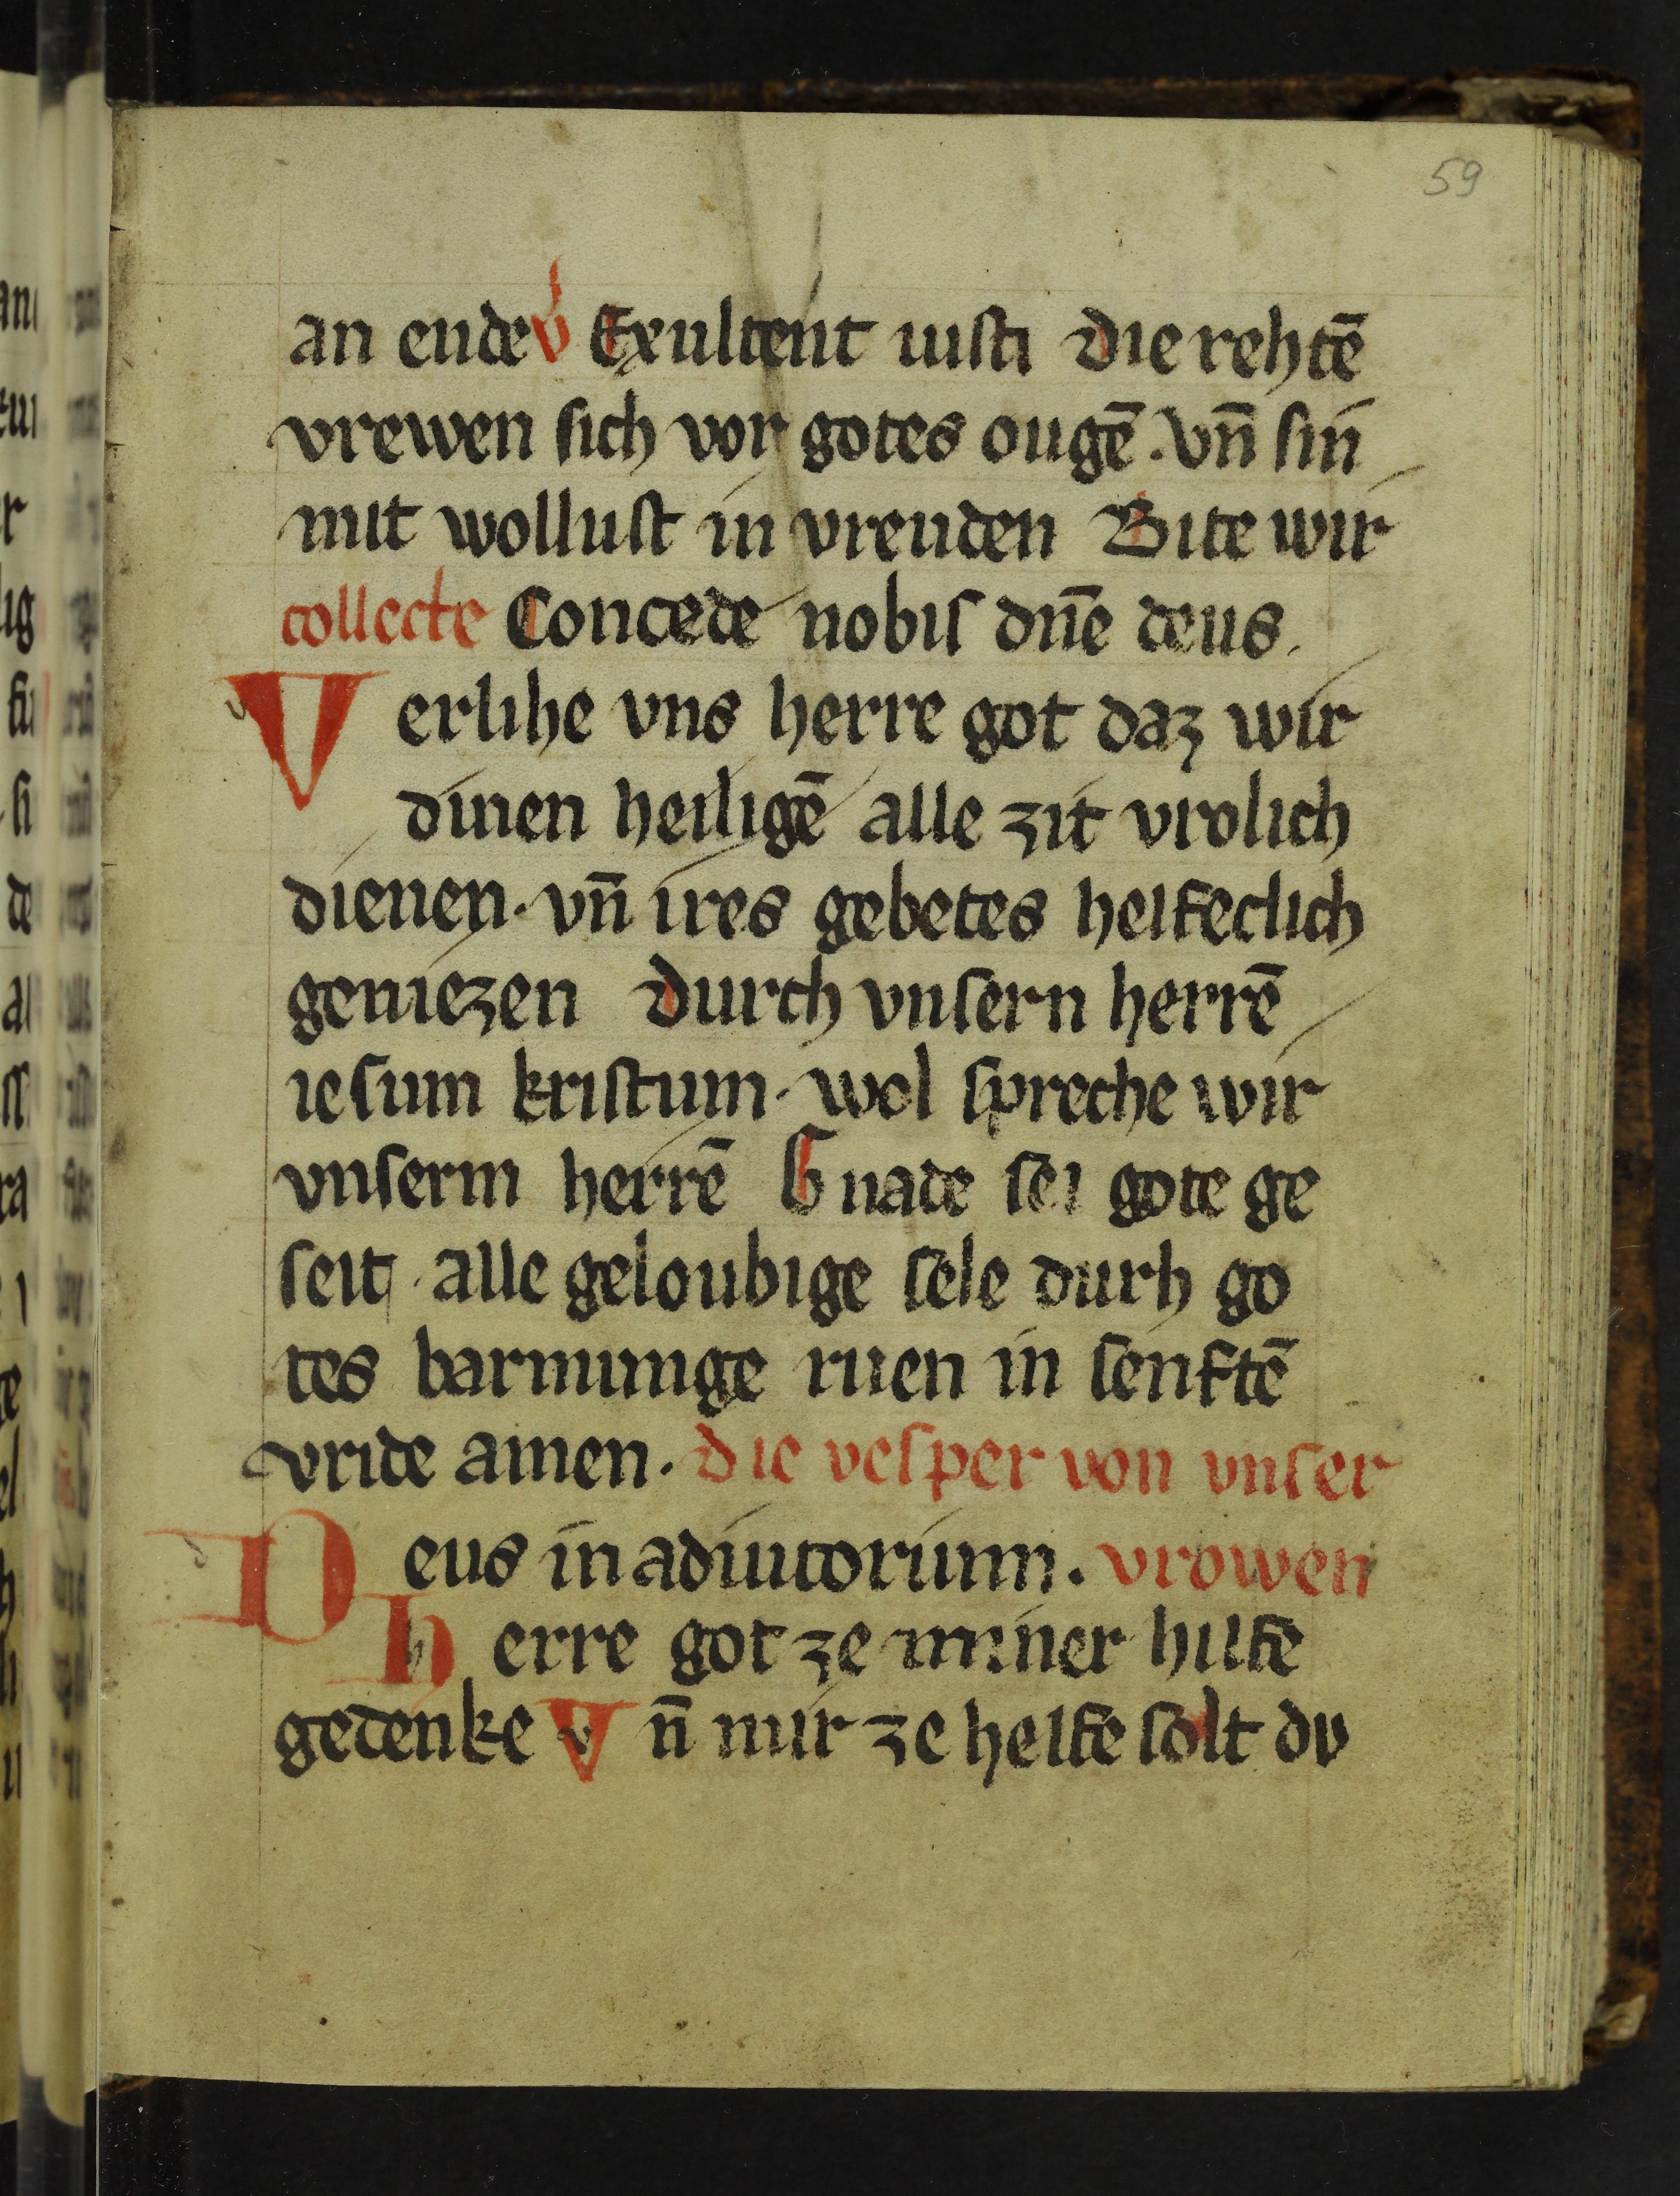 59
an ende v Exultent iusti die rehtē
vrewen sich vor gotes ougē. vn̄ sin
mit wollust in vreuden Bite wir
collecte Concede nobis dn̄e deus.
Verlihe vns herre got daz wir
dinen heiligē alle zit vrolich
dienen. vn̄ ires gebetes helfeclich
geniezen durch vnsern herrē
iesum kristum. wol spreche wir
vnserm herrē Gnade sei gote ge
seit. alle geloubige sele durh go
tes barmunge ruen in senftē
vride amen. die vesper von vnser
Deus in adiutorium. vrowen
Herre got ze miner hilfe
gedenke Vn̄ mir ze helfe solt du